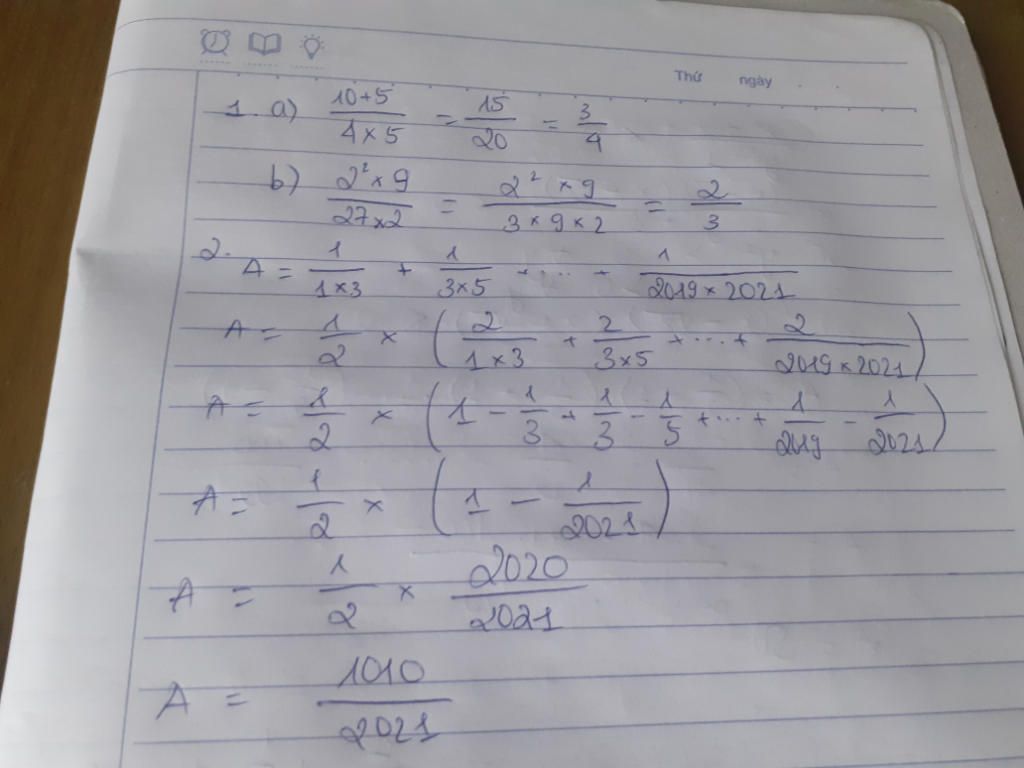 Thứ ngày
1. a) \frac{10+5}{4×5} = \frac{15}{20} = \frac{3}{4}
b) \frac{2^2×9}{27×2} = \frac{2^2×9}{3×9×2} = \frac{2}{3}
2. A = \frac{1}{1×3} + \frac{1}{3×5} + ... + \frac{1}{2019×2021}
A = \frac{1}{2} × (\frac{2}{1×3} + \frac{2}{3×5} + ... + \frac{2}{2019×2021})
A = \frac{1}{2} × (1 - \frac{1}{3} + \frac{1}{3} - \frac{1}{5} + ... + \frac{1}{2019} - \frac{1}{2021})
A = \frac{1}{2} × (1 - \frac{1}{2021})
A = \frac{1}{2} × \frac{2020}{2021}
A = \frac{1010}{2021}